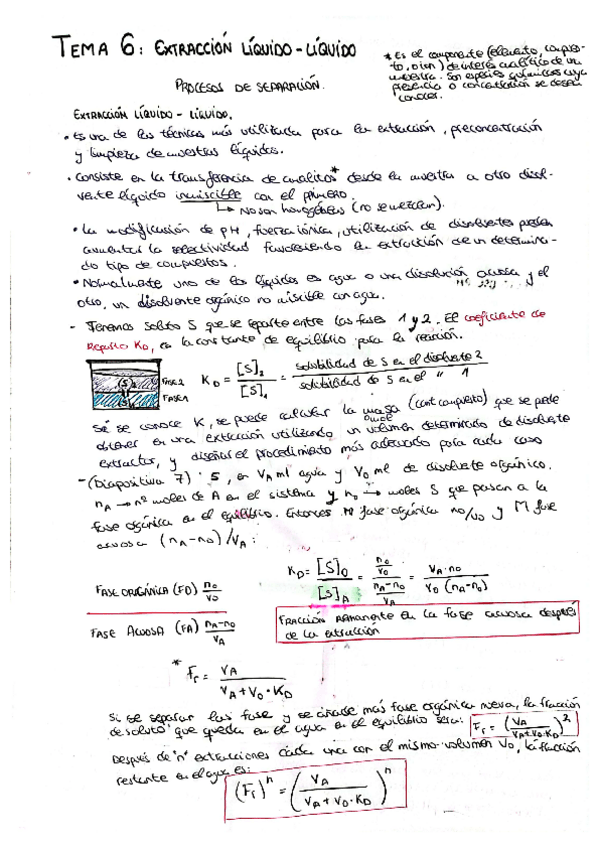 TEMA 6: EXTRACCIÓN LÍQUIDO-LÍQUIDO
* Es el componente (elemento, compues-
to, o ion) de interés analítico de una
muestra. Son especies químicas cuya
presencia o concentración se desea
conocer.
PROCESOS DE SEPARACIÓN.
EXTRACCIÓN LÍQUIDO - LÍQUIDO.
• Es una de las técnicas más utilizada para la extracción, preconcentración
y limpieza de muestras líquidas.
• Consiste en la transferencia de analitos* desde la muestra a otro disol-
vente líquido inmiscible con el primero.
↳ No son homogéneas (no se mezclan).
• La modificación de pH, fuerza iónica, utilización de disolventes pueden
aumentar la selectividad favoreciendo la extracción de un determina-
do tipo de compuestos.
• Normalmente uno de los líquidos es agua o una disolución acuosa y el
otro, un disolvente orgánico no miscible con agua.
- Tenemos soluto S que se reparte entre las fases 1 y 2. El coeficiente de
Reparto KD, es la constante de equilibrio para la reacción.
(S)2 FASE 2
(S)1 FASE 1
KD = [S]2 / [S]1 = solubilidad de S en el disolvente 2 / solubilidad de S en el " 1
Si se conoce K, se puede calcular la masa (cant compuesto) que se puede
obtener en una extracción utilizando un volumen determinado de disolvente
extractor, y diseñar el procedimiento más adecuado para cada caso
- (Diapositiva 7) S, en VA ml agua y VO ml de disolvente orgánico.
nA → nº moles de A en el sistema y no → moles S que pasan a la
fase orgánica en el equilibrio. Entonces M fase orgánica no/vo y M fase
acuosa (nA-no)/VA:
FASE ORGÁNICA (FO) no/vo
FASE ACUOSA (FA) nA-no/VA
KD = [S]O / [S]A = (no/vo) / (nA-no/VA) = VA·no / VO (nA-no)
FRACCIÓN REMANENTE en la fase acuosa después
de la extracción
* Fr = VA / VA+VO·KD
Si se separan las fase y se añade más fase orgánica nueva, la fracción
de soluto que queda en el agua en el equilibrio será: Fr = (VA / VA+VO·KD)²
Después de "n" extracciones cada una con el mismo volumen VO, la fracción
restante en el agua es:
(Fr)ⁿ = (VA / VA+VO·KD)ⁿ